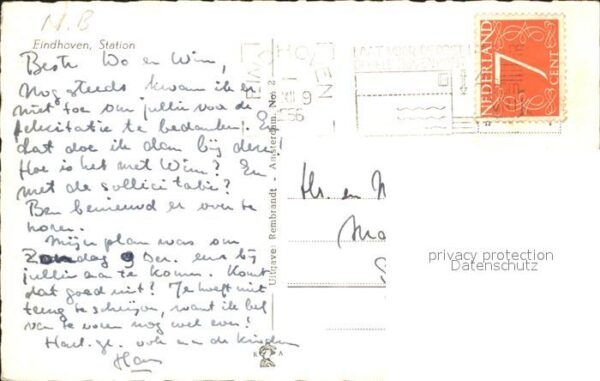 N.B
Eindhoven, Station
Beste Wo en Wim,
nog steeds kwam ik er
niet toe om jullie voor de
felicitatie te bedanken. En
dat doe ik dan bij deze!
Hoe is het met Wim? En
met de sollicitatie?
Ben benieuwd er over te
horen.
Mijn plan was om
Zondag 9 Dec. eens bij
jullie aan te komen. Komt
dat goed uit? Je hoeft niet
terug te schrijven, want ik bel
van te voren nog wel even!
Hartl. gr. ook aan de kinderen
Han
Uitgave: Rembrandt - Amsterdam. No: 2
R A
EINDHOVEN
XII 9
1956
NEDERLAND
7
CENT
Hr. en
privacy protection
Datenschutz